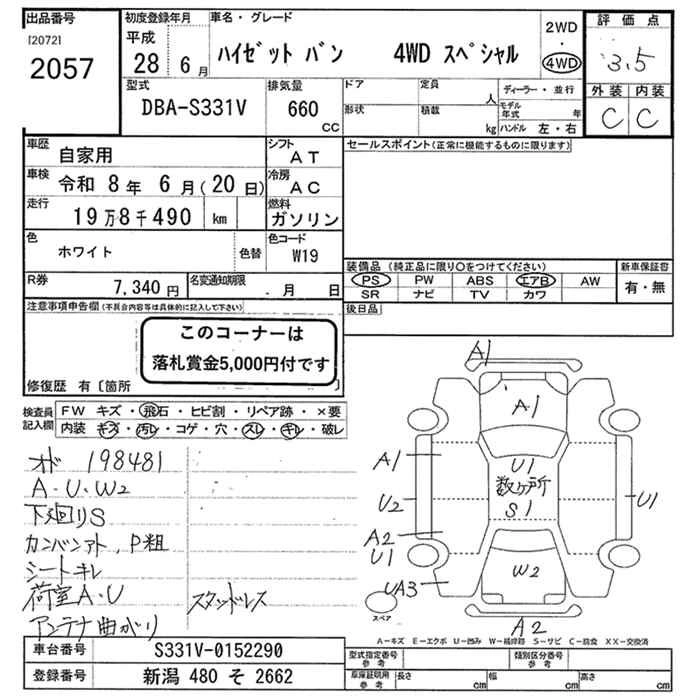 出品番号
[2072]
2057
初度登録年月
平成
28 6月
車名・グレード
ハイゼット バン 4WD スペシャル
2WD
・
4WD
評価点
3.5
外装 内装
C C
型式
DBA-S331V
排気量
660
cc
ドア
定員
人
ディーラー・並行
形状
積載
kg
モデル年式 年
ハンドル 左・右
車歴
自家用
シフト
AT
セールスポイント(正常に機能するものに限ります)
車検
令和 8年 6月(20日)
冷房
AC
走行
19万8千490 km
燃料
ガソリン
色
ホワイト
色替
色コード
W19
R券
7,340円
名変通知期限
. 月 日
装備品(純正品に限り○をつけてください)
PS PW ABS エアB AW
SR ナビ TV カワ
新車保証書
有・無
後日品
注意事項申告欄(不具合内容等は具体的に記入して下さい)
このコーナーは
落札賞金5,000円付です
修復歴 有〔箇所 〕
検査員
記入欄
FW キズ・飛石・ヒビ割・リペア跡・×要
内装・キズ・汚レ・コゲ・穴・スレ・キレ・破レ
オド 198481
A・U・W2
下廻りS
カンバンアト、P粗
シートキレ
荷室A・U
スタッドレス
アンテナ曲がり
A1
A1
A1
U1
数ヶ所
S1
U2
U1
A2
U1
W2
UA3
スペア
A2
A－キズ E－エクボ U－凹み W－補修跡 S－サビ C－腐食 XX－交換済
車台番号
S331V-0152290
登録番号
新潟 480 そ 2662
型式指定番号
参考
類別区分番号
参考
車庫証明用
参考
長さ cm
幅 cm
高さ cm